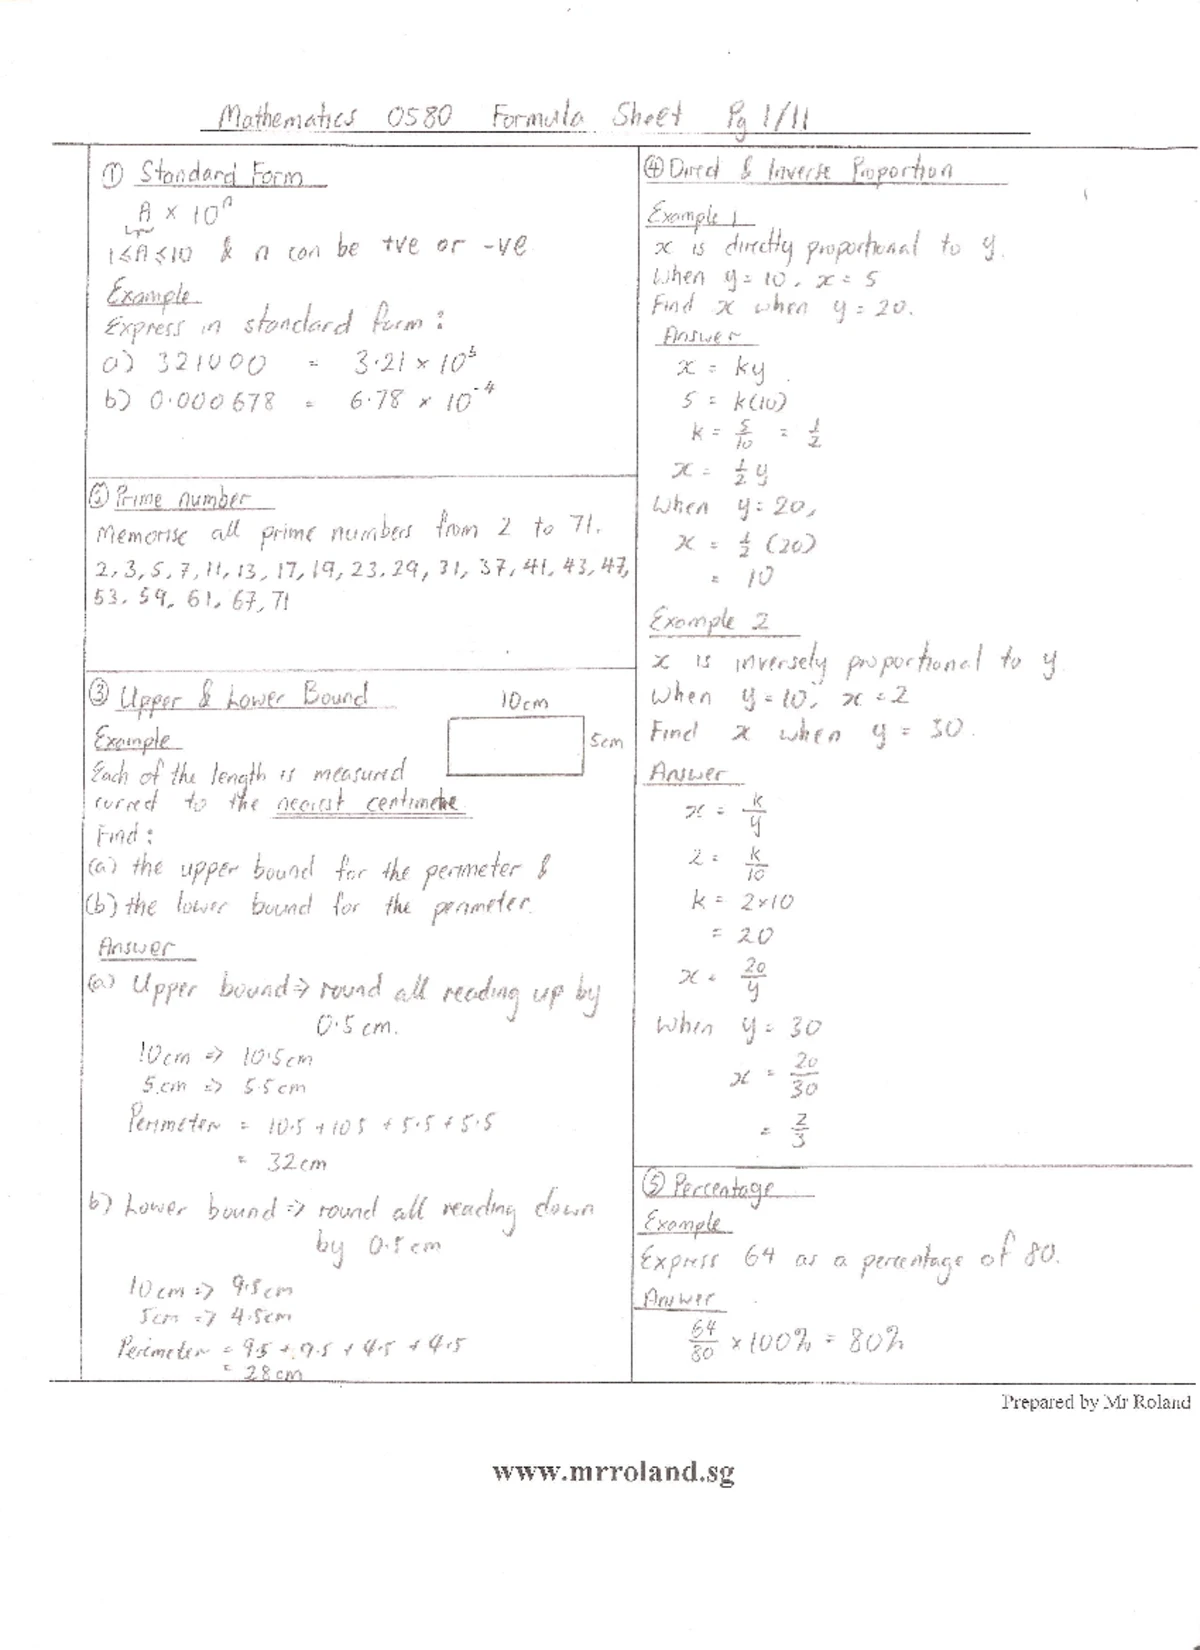 Mathematics 0580 Formula Sheet Pg 1/11
① Standard Form
A × 10ⁿ
1≤A≤10 & n can be +ve or -ve
Example
Express in standard form :
a) 321000 = 3.21 × 10⁵
b) 0.000678 = 6.78 × 10⁻⁴
② Prime number
Memorise all prime numbers from 2 to 71.
2, 3, 5, 7, 11, 13, 17, 19, 23, 29, 31, 37, 41, 43, 47,
53, 59, 61, 67, 71
③ Upper & Lower Bound
10cm
5cm
Example
Each of the length is measured
correct to the nearest centimetre
Find :
(a) the upper bound for the perimeter &
(b) the lower bound for the perimeter.
Answer
(a) Upper bound => round all reading up by
0.5 cm.
10cm => 10.5cm
5cm => 5.5cm
Perimeter = 10.5 + 10.5 + 5.5 + 5.5
= 32cm
b) Lower bound => round all reading down
by 0.5cm
10cm => 9.5cm
5cm => 4.5cm
Perimeter = 9.5 + 9.5 + 4.5 + 4.5
= 28cm
④ Direct & Inverse Proportion
Example 1
x is directly proportional to y.
When y = 10, x = 5
Find x when y = 20.
Answer
x = ky
5 = k(10)
k = 5/10 = 1/2
x = 1/2 y
When y = 20,
x = 1/2 (20)
= 10
Example 2
x is inversely proportional to y
When y = 10, x = 2
Find x when y = 30.
Answer
x = k/y
2 = k/10
k = 2×10
= 20
x = 20/y
When y = 30
x = 20/30
= 2/3
⑤ Percentage
Example
Express 64 as a percentage of 80.
Answer
64/80 × 100% = 80%
Prepared by Mr Roland
www.mrroland.sg